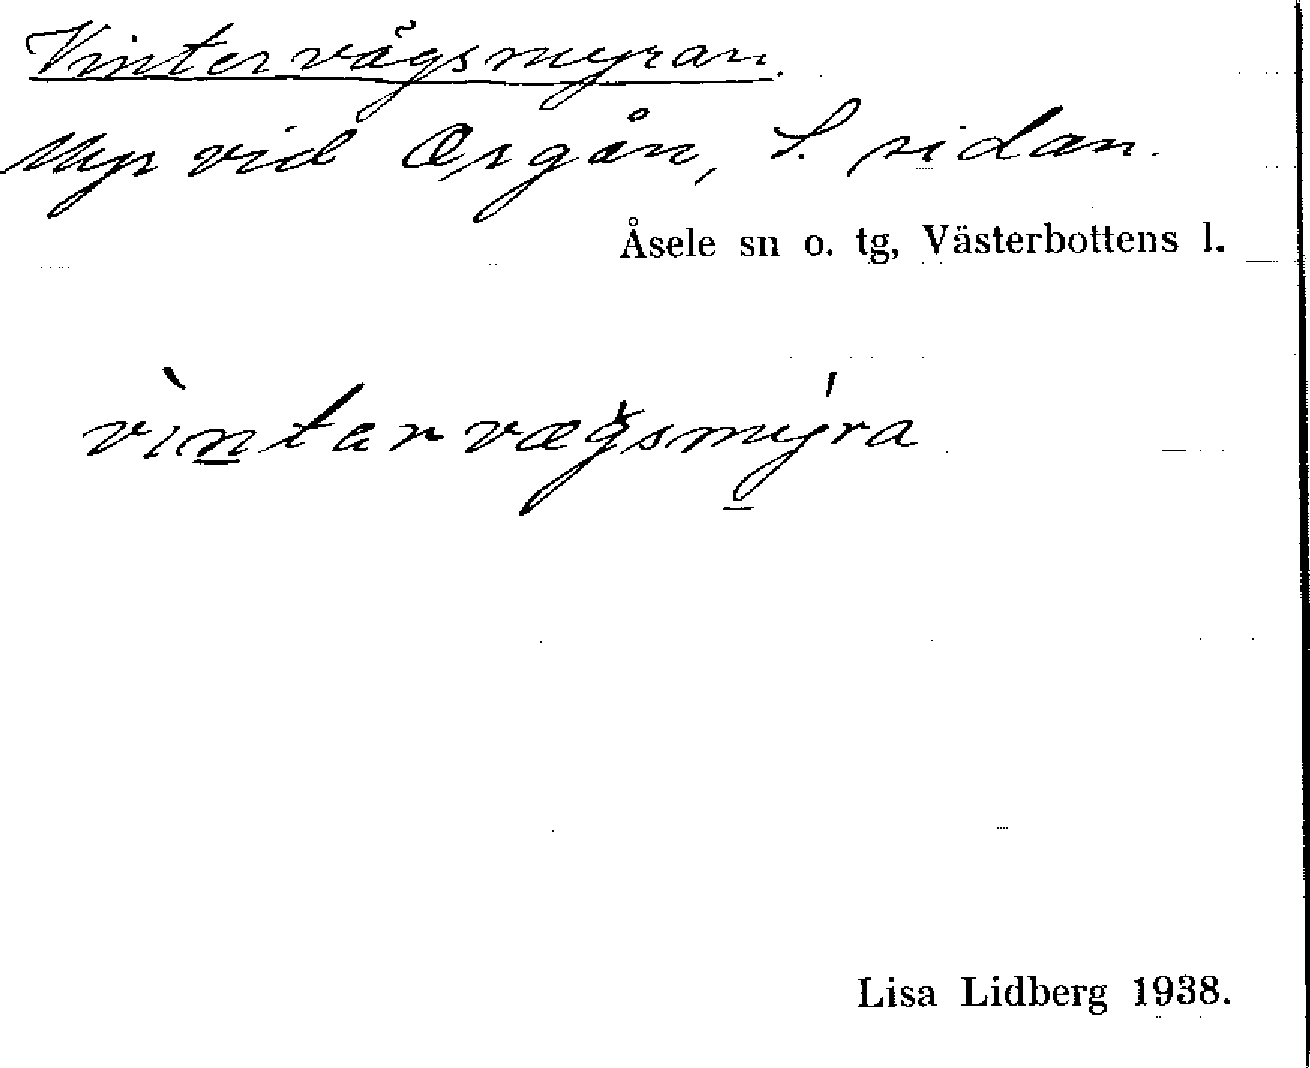 Vintervägsmyran.
Myr vid Orgån, S. sidan.
Åsele sn o. tg, Västerbottens l.
vìntarvægsmy̍ra
Lisa Lidberg 1938.